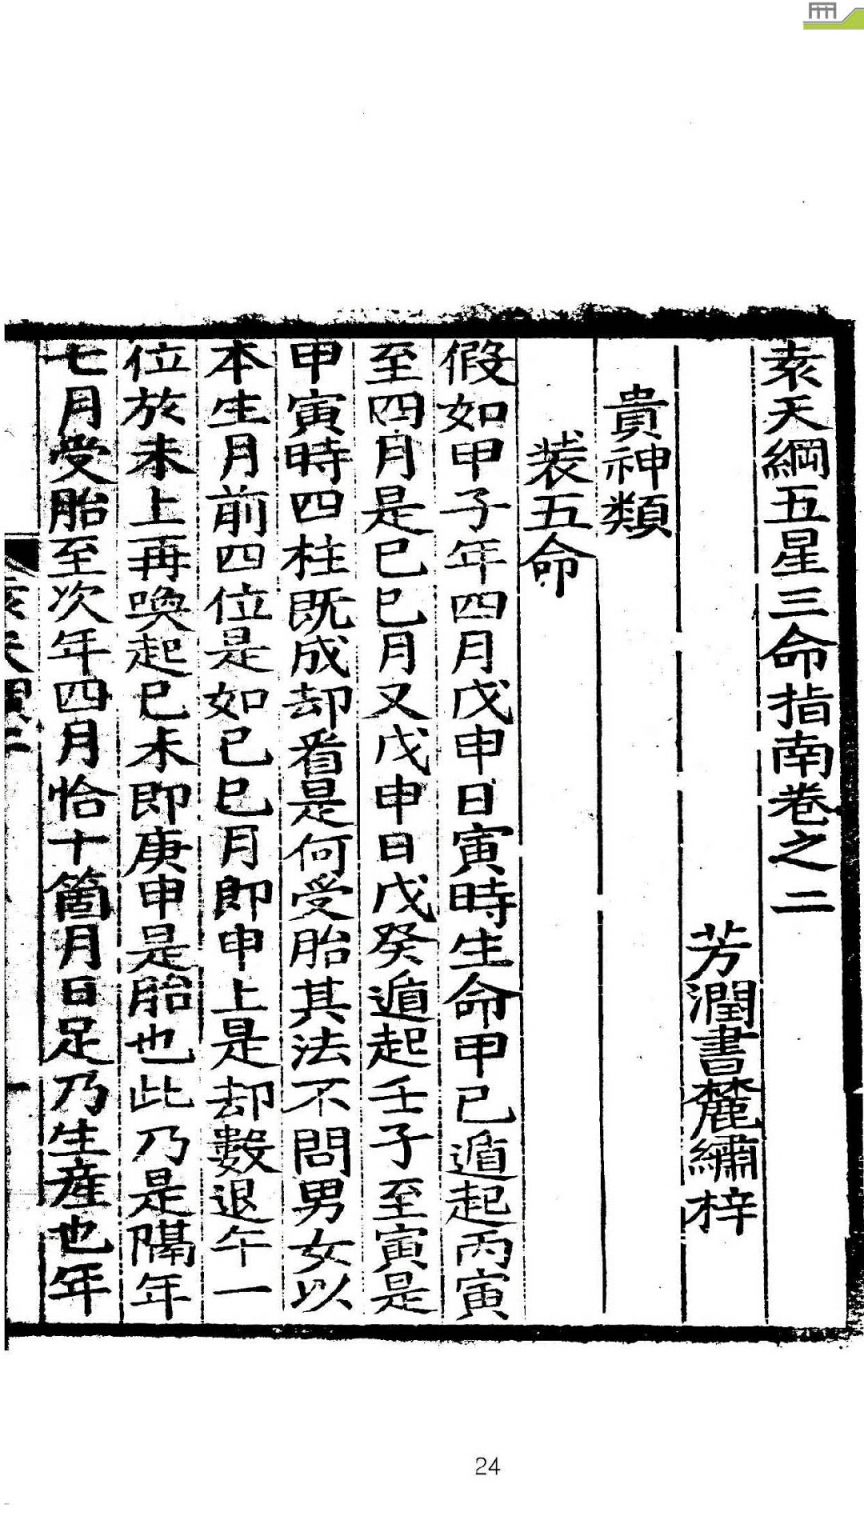 袁天綱五星三命指南卷之二
芳潤書麓繡梓
貴神類
裝五命
假如甲子年四月戊申日寅時生命甲己遁起丙寅
至四月是己巳月又戊申日戊癸遁起壬子至寅是
甲寅時四柱既成却看是何受胎其法不問男女以
本生月前四位是如己巳月郎申上是却數退午一
位於未上再喚起己未即庚申是胎也此乃是隔年
七月受胎至次年四月恰十箇月日足乃生產也年
24